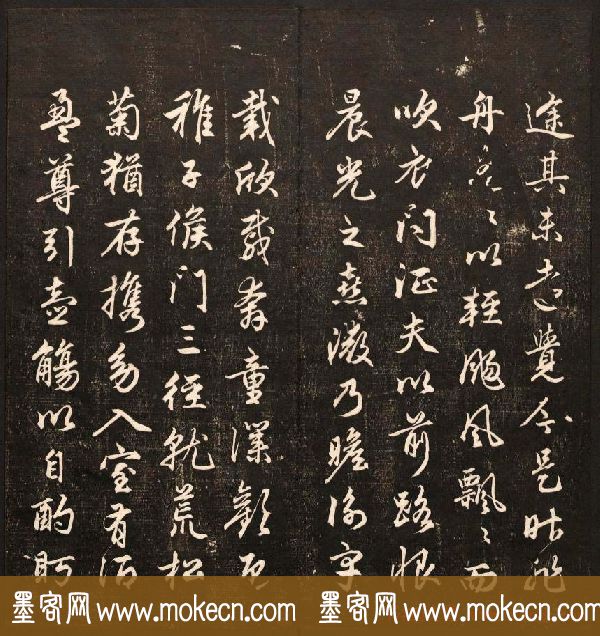 途其未遠覺今是昨非
舟遙〻以輕颺風飄〻而
吹衣問征夫以前路恨
晨光之熹微乃瞻衡宇
載欣載奔童僕歡迎
稚子候門三徑就荒松
菊猶存攜幼入室有酒
盈尊引壺觴以自酌眄
墨客网 www.mokecn.com 墨客网 www.mokecn.com